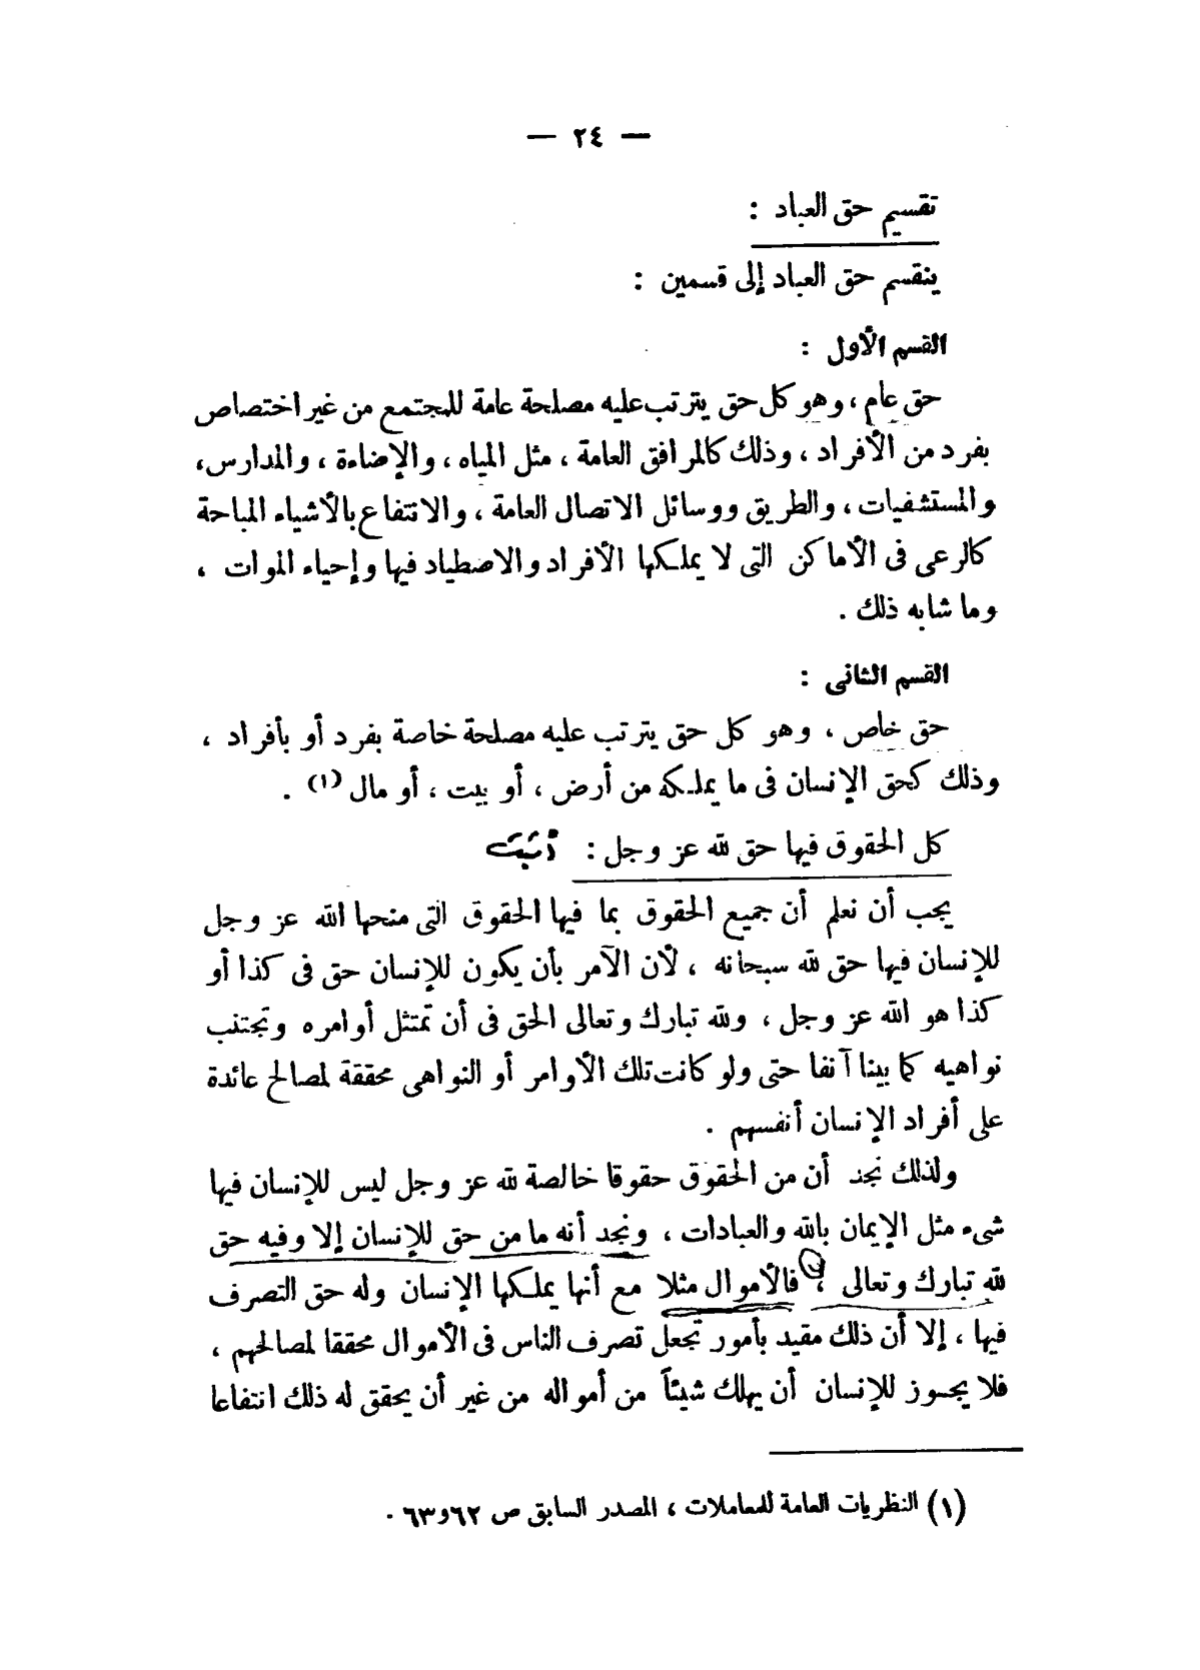 — ٢٤ —
تقسيم حق العباد :
ينقسم حق العباد إلى قسمين :
القسم الأول :
حق عام ، وهو كل حق يترتب عليه مصلحة عامة للمجتمع من غير اختصاص
بفرد من الأفراد ، وذلك كالمرافق العامة ، مثل المياه ، والإضاءة ، والمدارس ،
والمستشفيات ، والطريق ووسائل الاتصال العامة ، والانتفاع بالأشياء المباحة
كالرعى فى الأماكن التى لا يملكها الأفراد والاصطياد فيها وإحياء الموات ،
وما شابه ذلك .
القسم الثانى :
حق خاص ، وهو كل حق يترتب عليه مصلحة خاصة بفرد أو بأفراد ،
وذلك كحق الإنسان فى ما يملكه من أرض ، أو بيت ، أو مال (١) .
كل الحقوق فيها حق لله عز وجل :
يجب أن نعلم أن جميع الحقوق بما فيها الحقوق التى منحها الله عز وجل
للإنسان فيها حق لله سبحانه ، لأن الآمر بأن يكون للإنسان حق فى كذا أو
كذا هو الله عز وجل ، ولله تبارك وتعالى الحق فى أن تمتثل أوامره وتجتنب
نواهيه كما بينا آنفا حتى ولو كانت تلك الأوامر أو النواهى محققة لمصالح عائدة
على أفراد الإنسان أنفسهم .
ولذلك نجد أن من الحقوق حقوقا خالصة لله عز وجل ليس للإنسان فيها
شىء مثل الإيمان بالله والعبادات ، ونجد أنه ما من حق للإنسان إلا وفيه حق
لله تبارك وتعالى ، فالأموال مثلا مع أنها يملكها الإنسان وله حق التصرف
فيها ، إلا أن ذلك مقيد بأمور تجعل تصرف الناس فى الأموال محققا لمصالحهم ،
فلا يجوز للإنسان أن يهلك شيئاً من أمواله من غير أن يحقق له ذلك انتفاعا
(١) النظريات العامة للمعاملات ، المصدر السابق ص ٦٢و٦٣ .